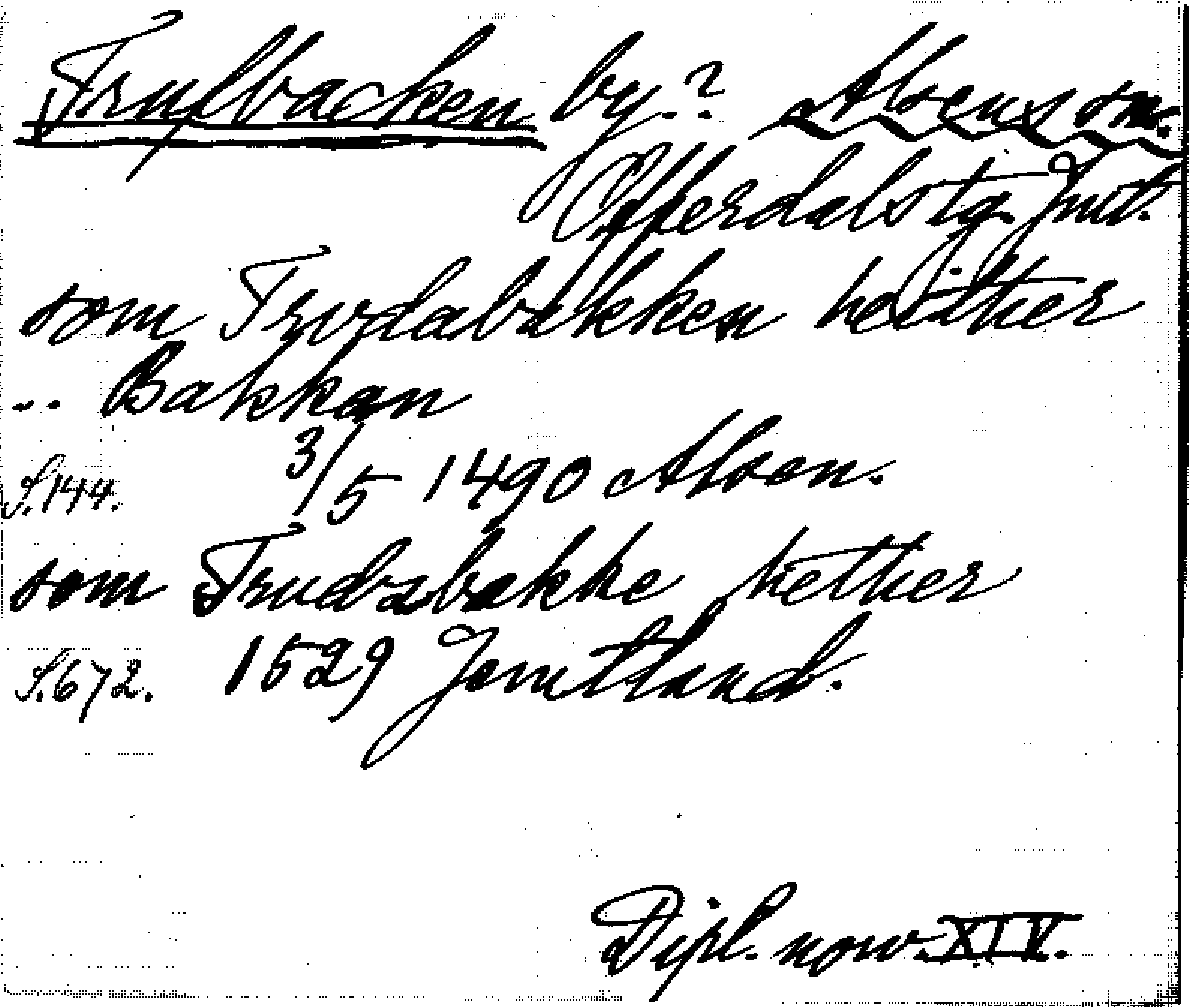 Trulbacken by.? Alsens sn.
Offerdals tg. Jmt.
som Trvdabakken heither
.. Bakkan
S.144. 3/5 1490 Alsen.
som Trudzbakke hether
S.672. 1529 Jemtland.
Dipl. norv. XIV.